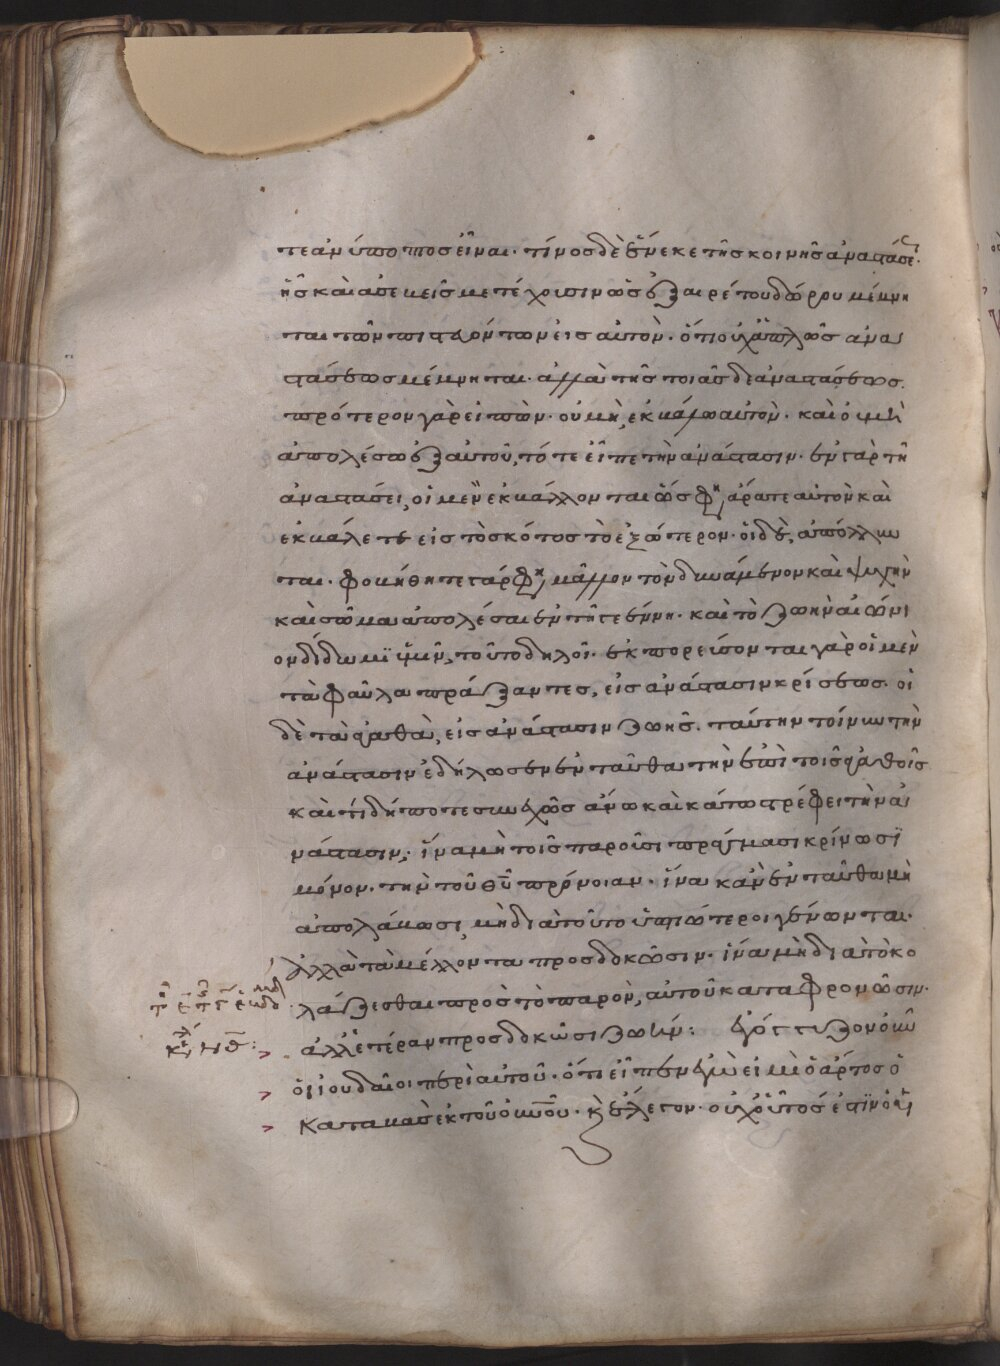 τεαν ὕποπτος εἶναι. τίνος δὲ ἕνεκε τῆς κοινῆς ἀναστάσε.
ἧς καὶ ἀσεβεῖς μετέχουσιν ὡς ἐξαιρέτου δώρου μέμνη
ται τῶν πιστευόντων εἰς αὐτὸν. ὅτι οὐχ ἁπλῶς ἀνα
στάσεως μέμνηται. ἀλλὰ τῆς τοιᾶσδε ἀναστάσεως.
πρότερον γὰρ εἰπὼν. οὐ μὴ, ἐκβάλω αὐτὸν. καὶ οὐ μὴ
ἀπολέσω ἐξ αὐτοῦ, τότε εἶπε τὴν ἀνάστασιν. ἐν γὰρ τῆ
ἀναστάσει, οἱ μὲν ἐκβάλλονται ὥς φη, ἄρατε αὐτὸν καὶ
ἐκβάλετε εἰς τὸ σκότος τὸ ἐξώτερον. οἱ δὲ, ἀπόλλυν
ται. φοβήθητε γάρ φη, μᾶλλον τὸν δυνάμενον καὶ ψυχὴν
καὶ σῶμα ἀπολέσαι ἐν τῆ γεέννη. καὶ τὸ ζωὴν αἰώνι
ον δίδωμι ὑμῖν, τοῦτο δηλοῖ. ἐκπορεύσονται γὰρ οἱ μὲν
τὰ φαῦλα πράξαντες, εἰς ἀνάστασιν κρίσεως. οἱ
δὲ τὰ ἀγαθὰ, εἰς ἀνάστασιν ζωῆς. ταύτην τοίνυν τὴν
ἀνάστασιν ἐδήλωσεν ἐνταῦθα τὴν ἐπὶ τοῖς ἀγαθοῖς
καὶ τί δήποτε συνεχῶς ἄνω καὶ κάτω στρέφει τὴν ἀ
νάστασιν, ἵνα μὴ τοῖς παροῦσι πράγμασι κρίνωσι
μόνον. τὴν τοῦ θυ πρόνοιαν. ἵνα κἂν ἐνταῦθα μὴ
ἀπολάβωσι, μὴ διὰ τοῦτο ὑπτιώτεροι γένωνται.
Ἀλλὰ τὰ μέλλοντα προσδοκῶσιν. ἵνα μὴ διὰ τὸ κο
λάζεσθαι πρὸς τὸ παρὸν, αὐτοῦ καταφρονῶσιν.
ἀλλ' ἑτέραν προσδοκῶσι ζωήν: Ἐγόγγυζον οὖν
οἱ ἰουδαῖοι περὶ αὐτοῦ. ὅτι εἶπεν ἐγώ εἰμι ὁ ἄρτος ὁ
καταβὰς ἐκ τοῦ οὐνοῦ. κ ἔλεγον. οὐχ οὗτός ἐστιν ὁ ἰς